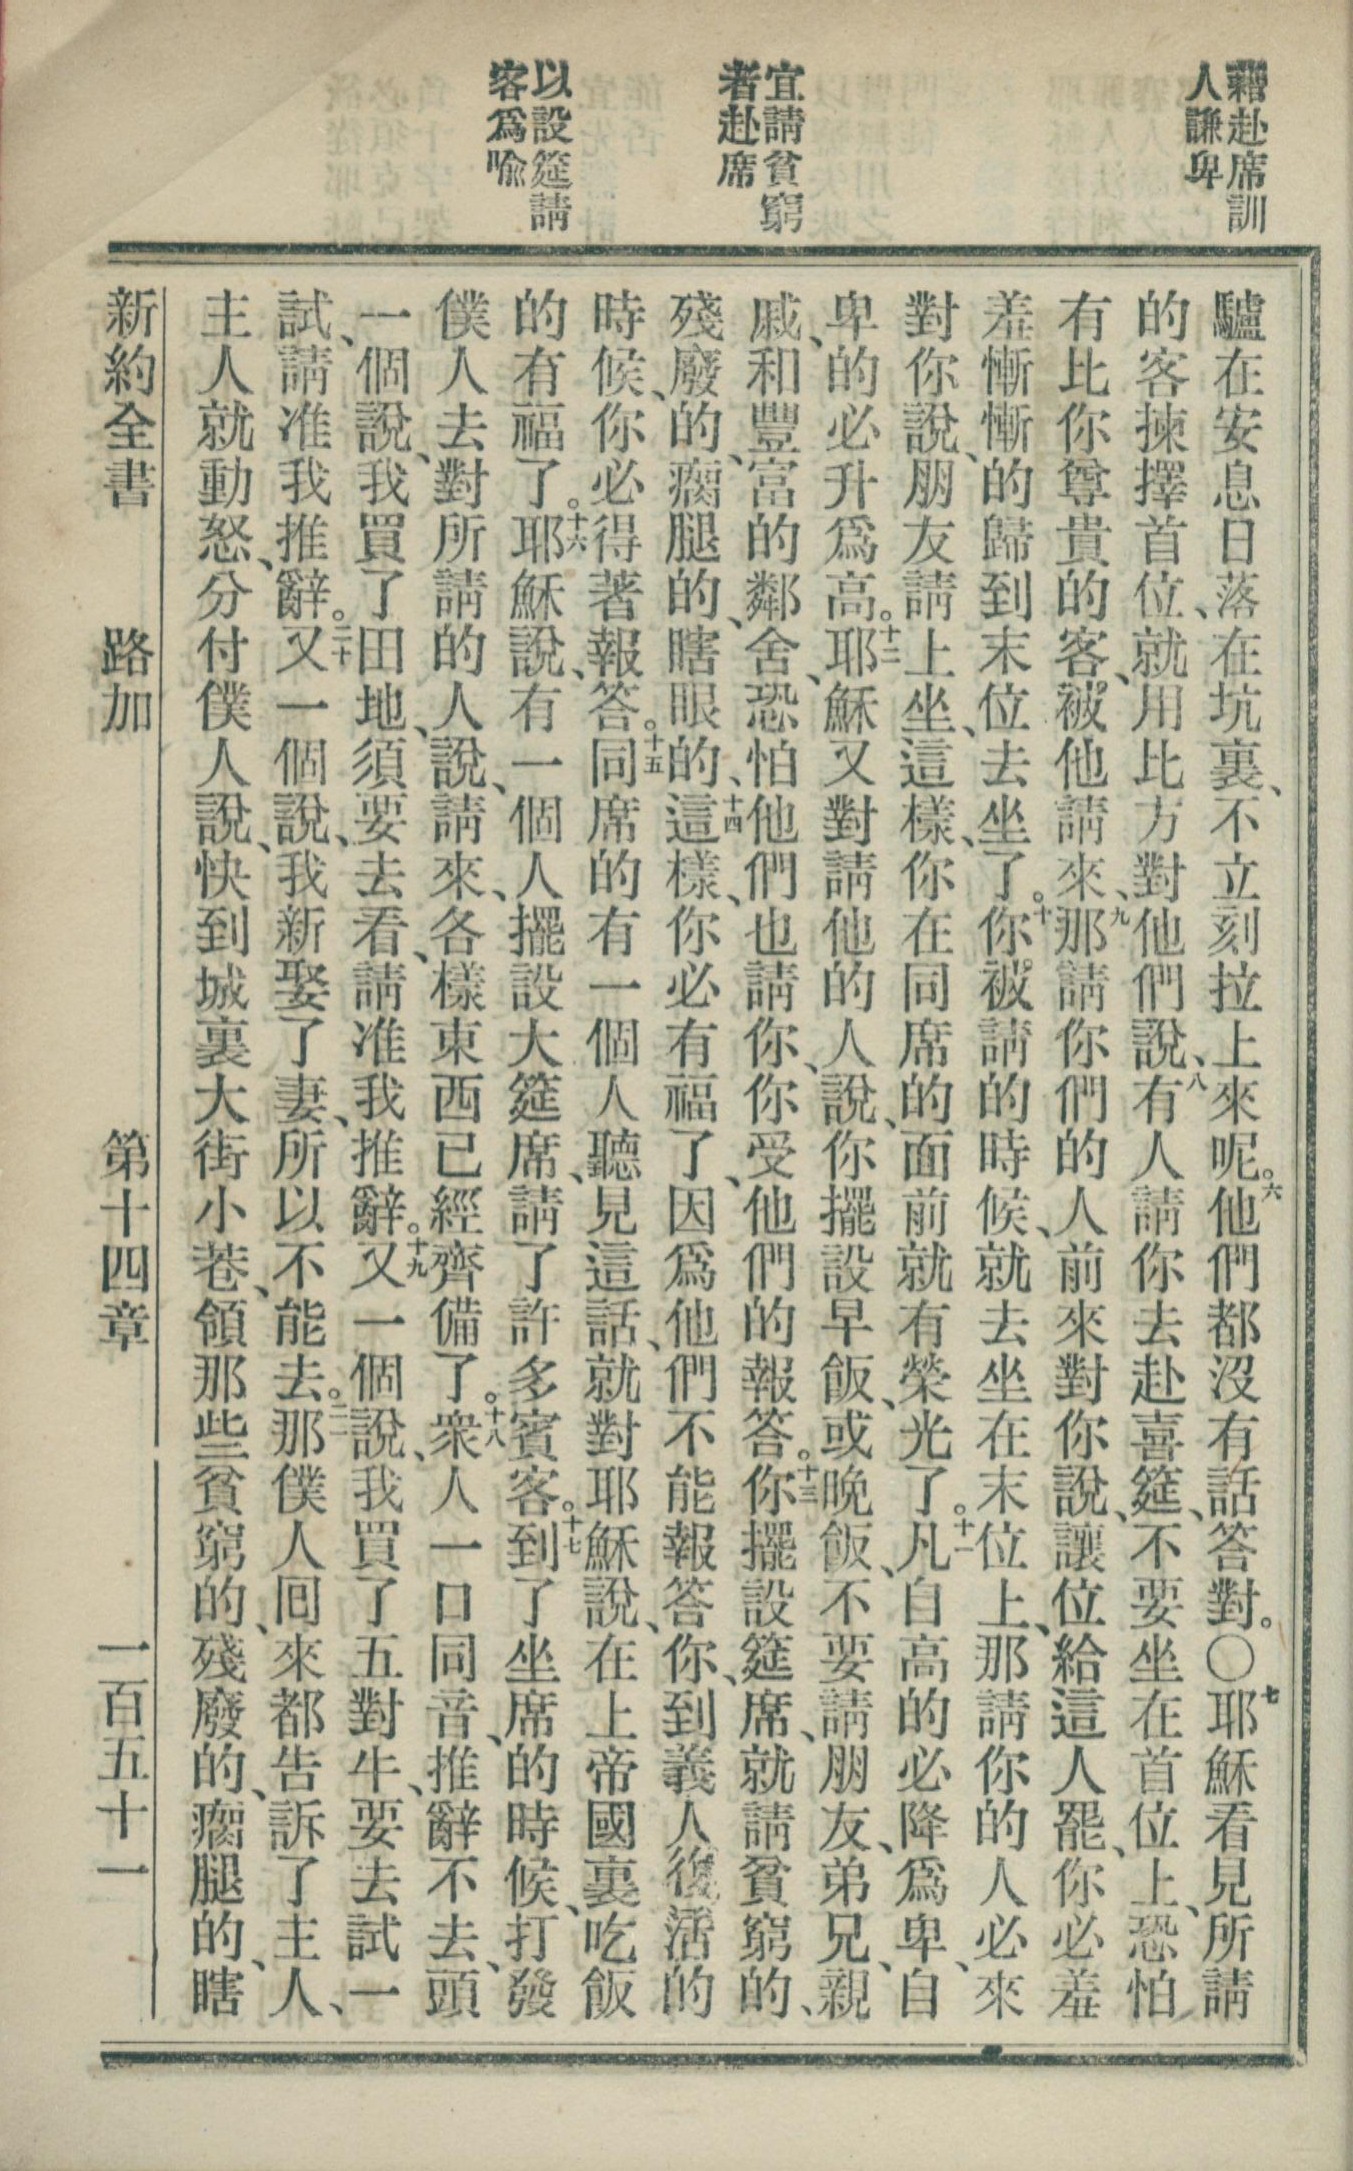 藉赴席訓
人謙卑
宜請貧窮
者赴席
以設筵請
客爲喻
驢在安息日落在坑裏、不立刻拉上來呢。六他們都沒有話答對。〇七耶穌看見所請
的客揀擇首位、就用比方對他們說、八有人請你去赴喜筵、不要坐在首位上、恐怕
有比你尊貴的客、被他請來、九那請你們的人前來對你說、讓位給這人罷、你必羞
羞慚慚的歸到末位去坐了。十你被請的時候、就去坐在末位上、那請你的人必來
對你說、朋友請上坐、這樣、你在同席的面前就有榮光了。十一凡自高的必降爲卑、自
卑的必升爲高。十二耶穌又對請他的人說、你擺設早飯、或晚飯、不要請朋友、弟兄、親
戚、和豐富的鄰舍、恐怕他們也請你、你受他們的報答。十三你擺設筵席、就請貧窮的、
殘廢的、瘸腿的、瞎眼的、十四這樣、你必有福了、因爲他們不能報答你、到義人復活的
時候、你必得著報答。十五同席的有一個人聽見這話、就對耶穌說、在上帝國裏吃飯
的有福了。十六耶穌說、有一個人擺設大筵席、請了許多賓客。十七到了坐席的時候、打發
僕人去對所請的人說、請來、各樣東西已經齊備了。十八衆人一口同音、推辭不去、頭
一個說、我買了田地、須要去看、請准我推辭。十九又一個說、我買了五對牛、要去試一
試、請准我推辭。二十又一個說、我新娶了妻、所以不能去。二一那僕人囘來都告訴了主人、
主人就動怒、分付僕人說、快到城裏大街小巷、領那些貧窮的、殘廢的、瘸腿的、瞎
新約全書 路加 第十四章 一百五十一